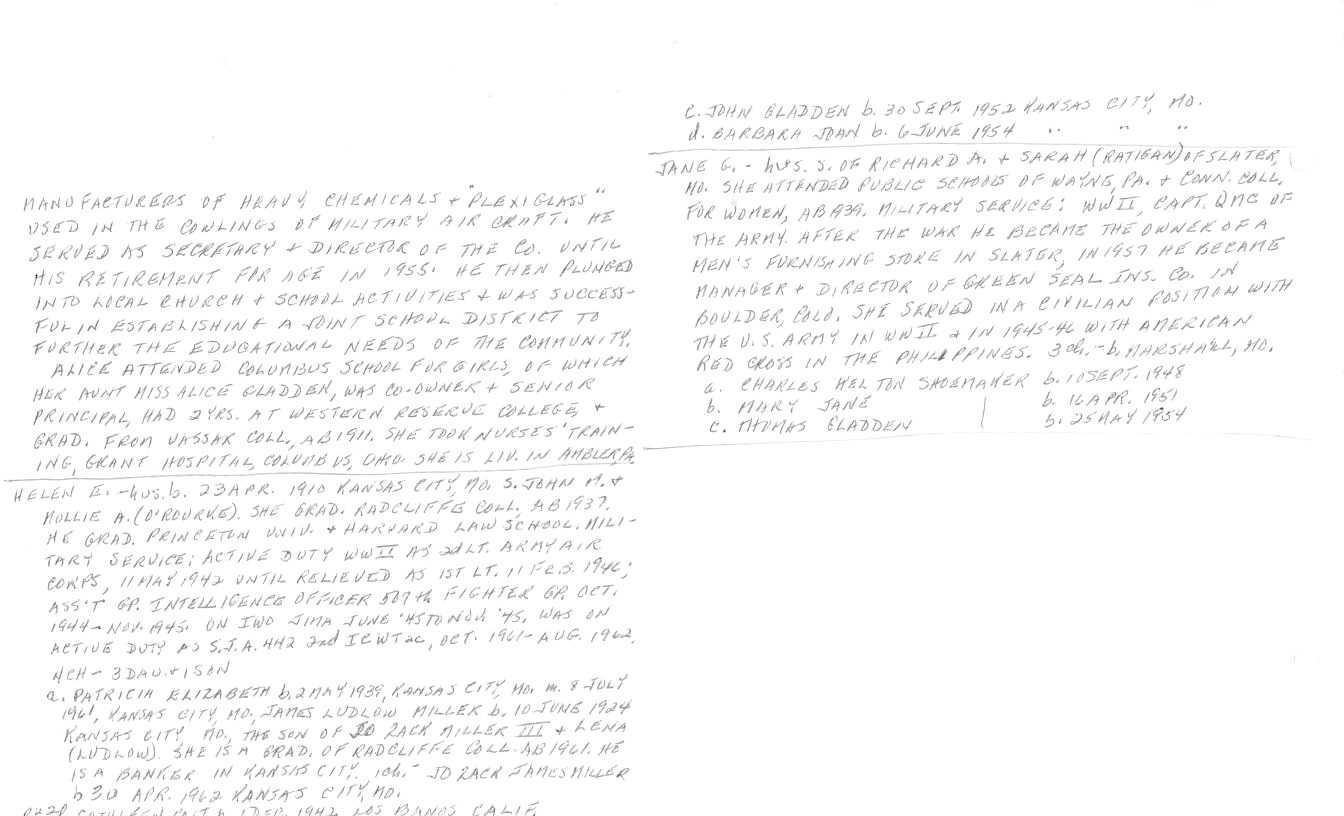 MANUFACTURERS OF HEAVY CHEMICALS + "PLEXIGLASS"
USED IN THE COWLINGS OF MILITARY AIR CRAFT. HE
SERVED AS SECRETARY + DIRECTOR OF THE CO. UNTIL
HIS RETIREMENT FOR AGE IN 1955. HE THEN PLUNGED
INTO LOCAL CHURCH + SCHOOL ACTIVITIES + WAS SUCCESS-
FUL IN ESTABLISHING A JOINT SCHOOL DISTRICT TO
FURTHER THE EDUCATIONAL NEEDS OF THE COMMUNITY.
ALICE ATTENDED COLUMBUS SCHOOL FOR GIRLS, OF WHICH
HER AUNT MISS ALICE GLADDEN, WAS CO-OWNER + SENIOR
PRINCIPAL, HAD 2 YRS. AT WESTERN RESERVE COLLEGE, +
GRAD. FROM VASSAR COLL., AB 1911. SHE TOOK NURSES' TRAIN-
ING, GRANT HOSPITAL, COLUMBUS, OHIO. SHE IS LIV. IN AMBLER, PA.
HELEN E. - hus. b. 23 APR. 1910 KANSAS CITY, MO. S. JOHN M. +
MOLLIE A. (O'ROURKE). SHE GRAD. RADCLIFFE COLL. AB 1937.
HE GRAD. PRINCETON UNIV. + HARVARD LAW SCHOOL. MILI-
TARY SERVICE: ACTIVE DUTY WWII AS 2d LT. ARMY AIR
CORPS, 11 MAY 1942 UNTIL RELIEVED AS 1ST LT. 11 FEB. 1946;
ASS'T GP. INTELLIGENCE OFFICER 507th FIGHTER GP. OCT.
1944 - NOV. 1945. ON IWO JIMA JUNE '45 TO NOV. '45. WAS ON
ACTIVE DUTY AS S.J.A. 442 2nd OCT. 1961 - AUG. 1962.
4 CH - 3 DAU. + 1 SON
a. PATRICIA ELIZABETH b. 2 MAY 1939, KANSAS CITY, MO. m. 8 JULY
1961, KANSAS CITY, MO, JAMES LUDLOW MILLER b. 10 JUNE 1924
KANSAS CITY, MO., THE SON OF JO ZACK MILLER III + LENA
(LUDLOW). SHE IS A GRAD. OF RADCLIFFE COLL. AB 1961. HE
IS A BANKER IN KANSAS CITY. 1 ch. - JO ZACK JAMES MILLER
b 30 APR. 1962 KANSAS CITY, MO.
b. 1 SEP. 1942 LOS BANOS CALIF.
c. JOHN GLADDEN b. 30 SEPT. 1952 KANSAS CITY, MO.
d. BARBARA JOAN b. 6 JUNE 1954 " " "
JANE G. - hus. S. OF RICHARD A. + SARAH (RATIGAN) OF SLATER,
MO. SHE ATTENDED PUBLIC SCHOOLS OF WAYNE, PA. + CONN. COLL.
FOR WOMEN, AB 1939. MILITARY SERVICE: WWII, CAPT. QMC OF
THE ARMY. AFTER THE WAR HE BECAME THE OWNER OF A
MEN'S FURNISHING STORE IN SLATER, IN 1957 HE BECAME
MANAGER + DIRECTOR OF GREEN SEAL INS. CO. IN
BOULDER, COLO. SHE SERVED IN A CIVILIAN POSITION WITH
THE U.S. ARMY IN WWII & IN 1945-46 WITH AMERICAN
RED CROSS IN THE PHILIPPINES. 3 ch. - b. MARSHALL, MO.
a. CHARLES HELTON SHOEMAKER b. 10 SEPT. 1948
b. MARY JANE b. 16 APR. 1951
c. THOMAS GLADDEN b. 25 MAY 1954